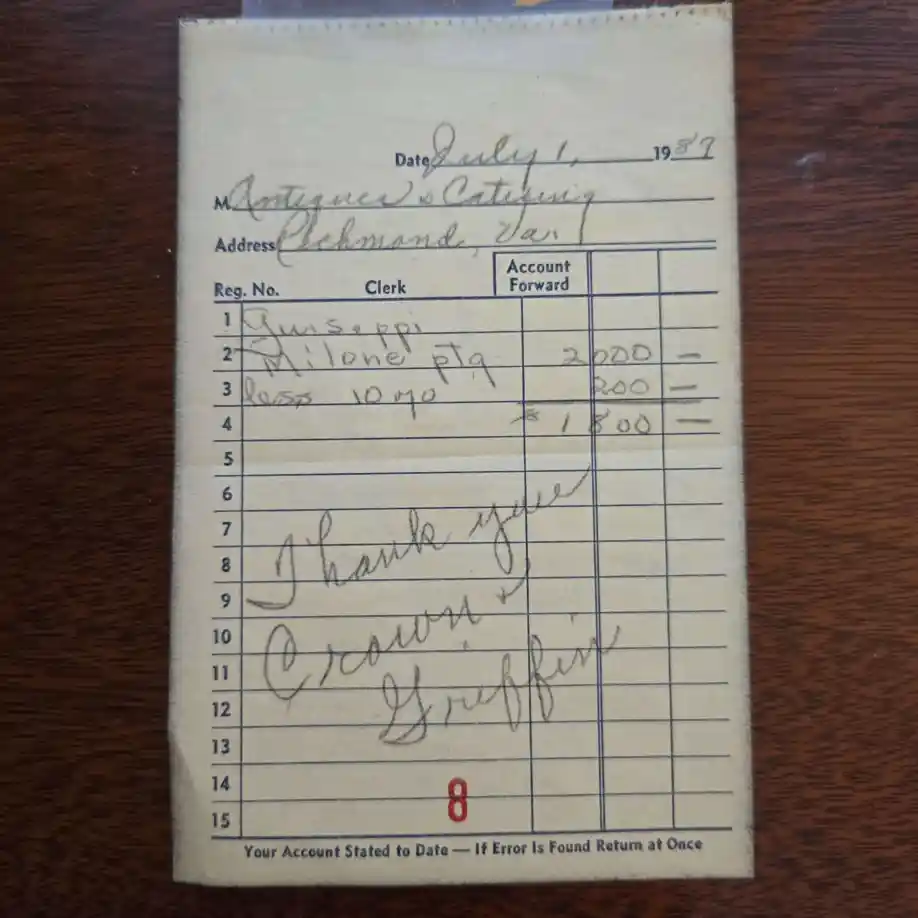 Date July 1, 1989
M Antiques & Catering
Address Richmond, Va.
Reg. No. Clerk Account Forward
1 Guiseppi
2 Milone ptg 2000 —
3 less 10% 200 —
4 $1800 —
5
6
7
8
9
10
11
12
13
14
15
Thank you
Crown &
Griffin
8
Your Account Stated to Date — If Error Is Found Return at Once